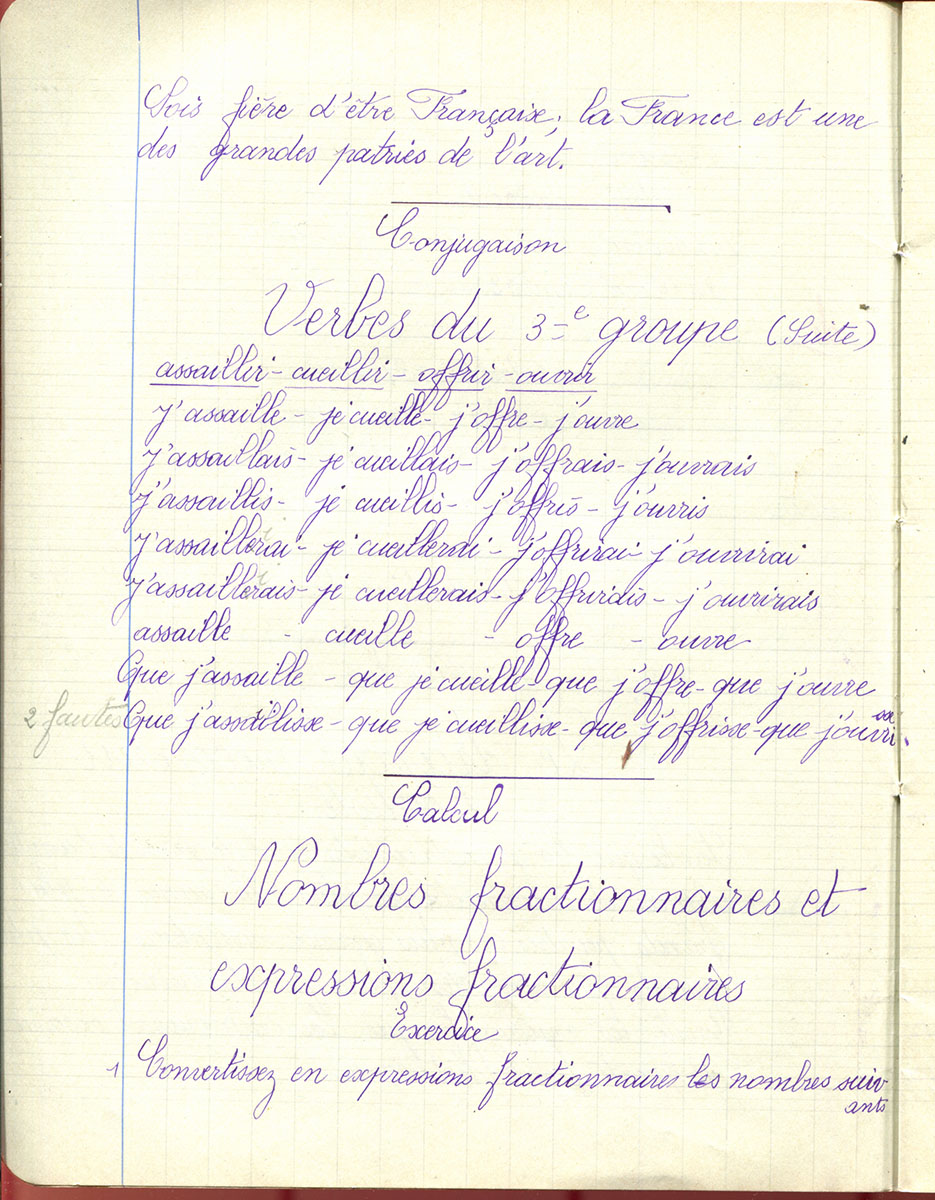 Sois fière d'être Française, la France est une
des grandes patries de l'art.
Conjugaison
Verbes du 3e groupe (Suite)
assaillir - cueillir - offrir - ouvrir
j'assaille - je cueille - j'offre - j'ouvre
j'assaillais - je cueillais - j'offrais - j'ouvrais
j'assaillis - je cueillis - j'offris - j'ouvris
j'assaillerai - je cueillerai - j'offrirai - j'ouvrirai
j'assaillerais - je cueillerais - j'offrirais - j'ouvrirais
assaille - cueille - offre - ouvre
Que j'assaille - que je cueille - que j'offre - que j'ouvre
2 fautes Que j'assaillisse - que je cueillisse - que j'offrisse - que j'ouvrisse
Calcul
Nombres fractionnaires et
expressions fractionnaires
Exercice
1 Convertissez en expressions fractionnaires les nombres suiv
ants